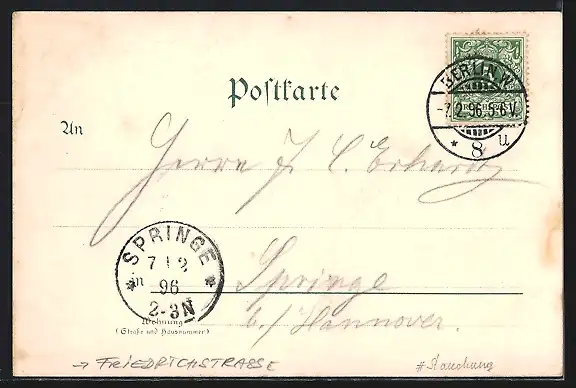 Postkarte
BERLIN W.
-7.2.96.5-6V.
* 8 u
An
Herrn J. C. Erhardt
SPRINGE
7 12
in
96
2-3N
Springe
Wohnung
(Straße und Hausnummer)
b./Hannover.
→ FRIEDRICHSTRASSE
# Stauchung